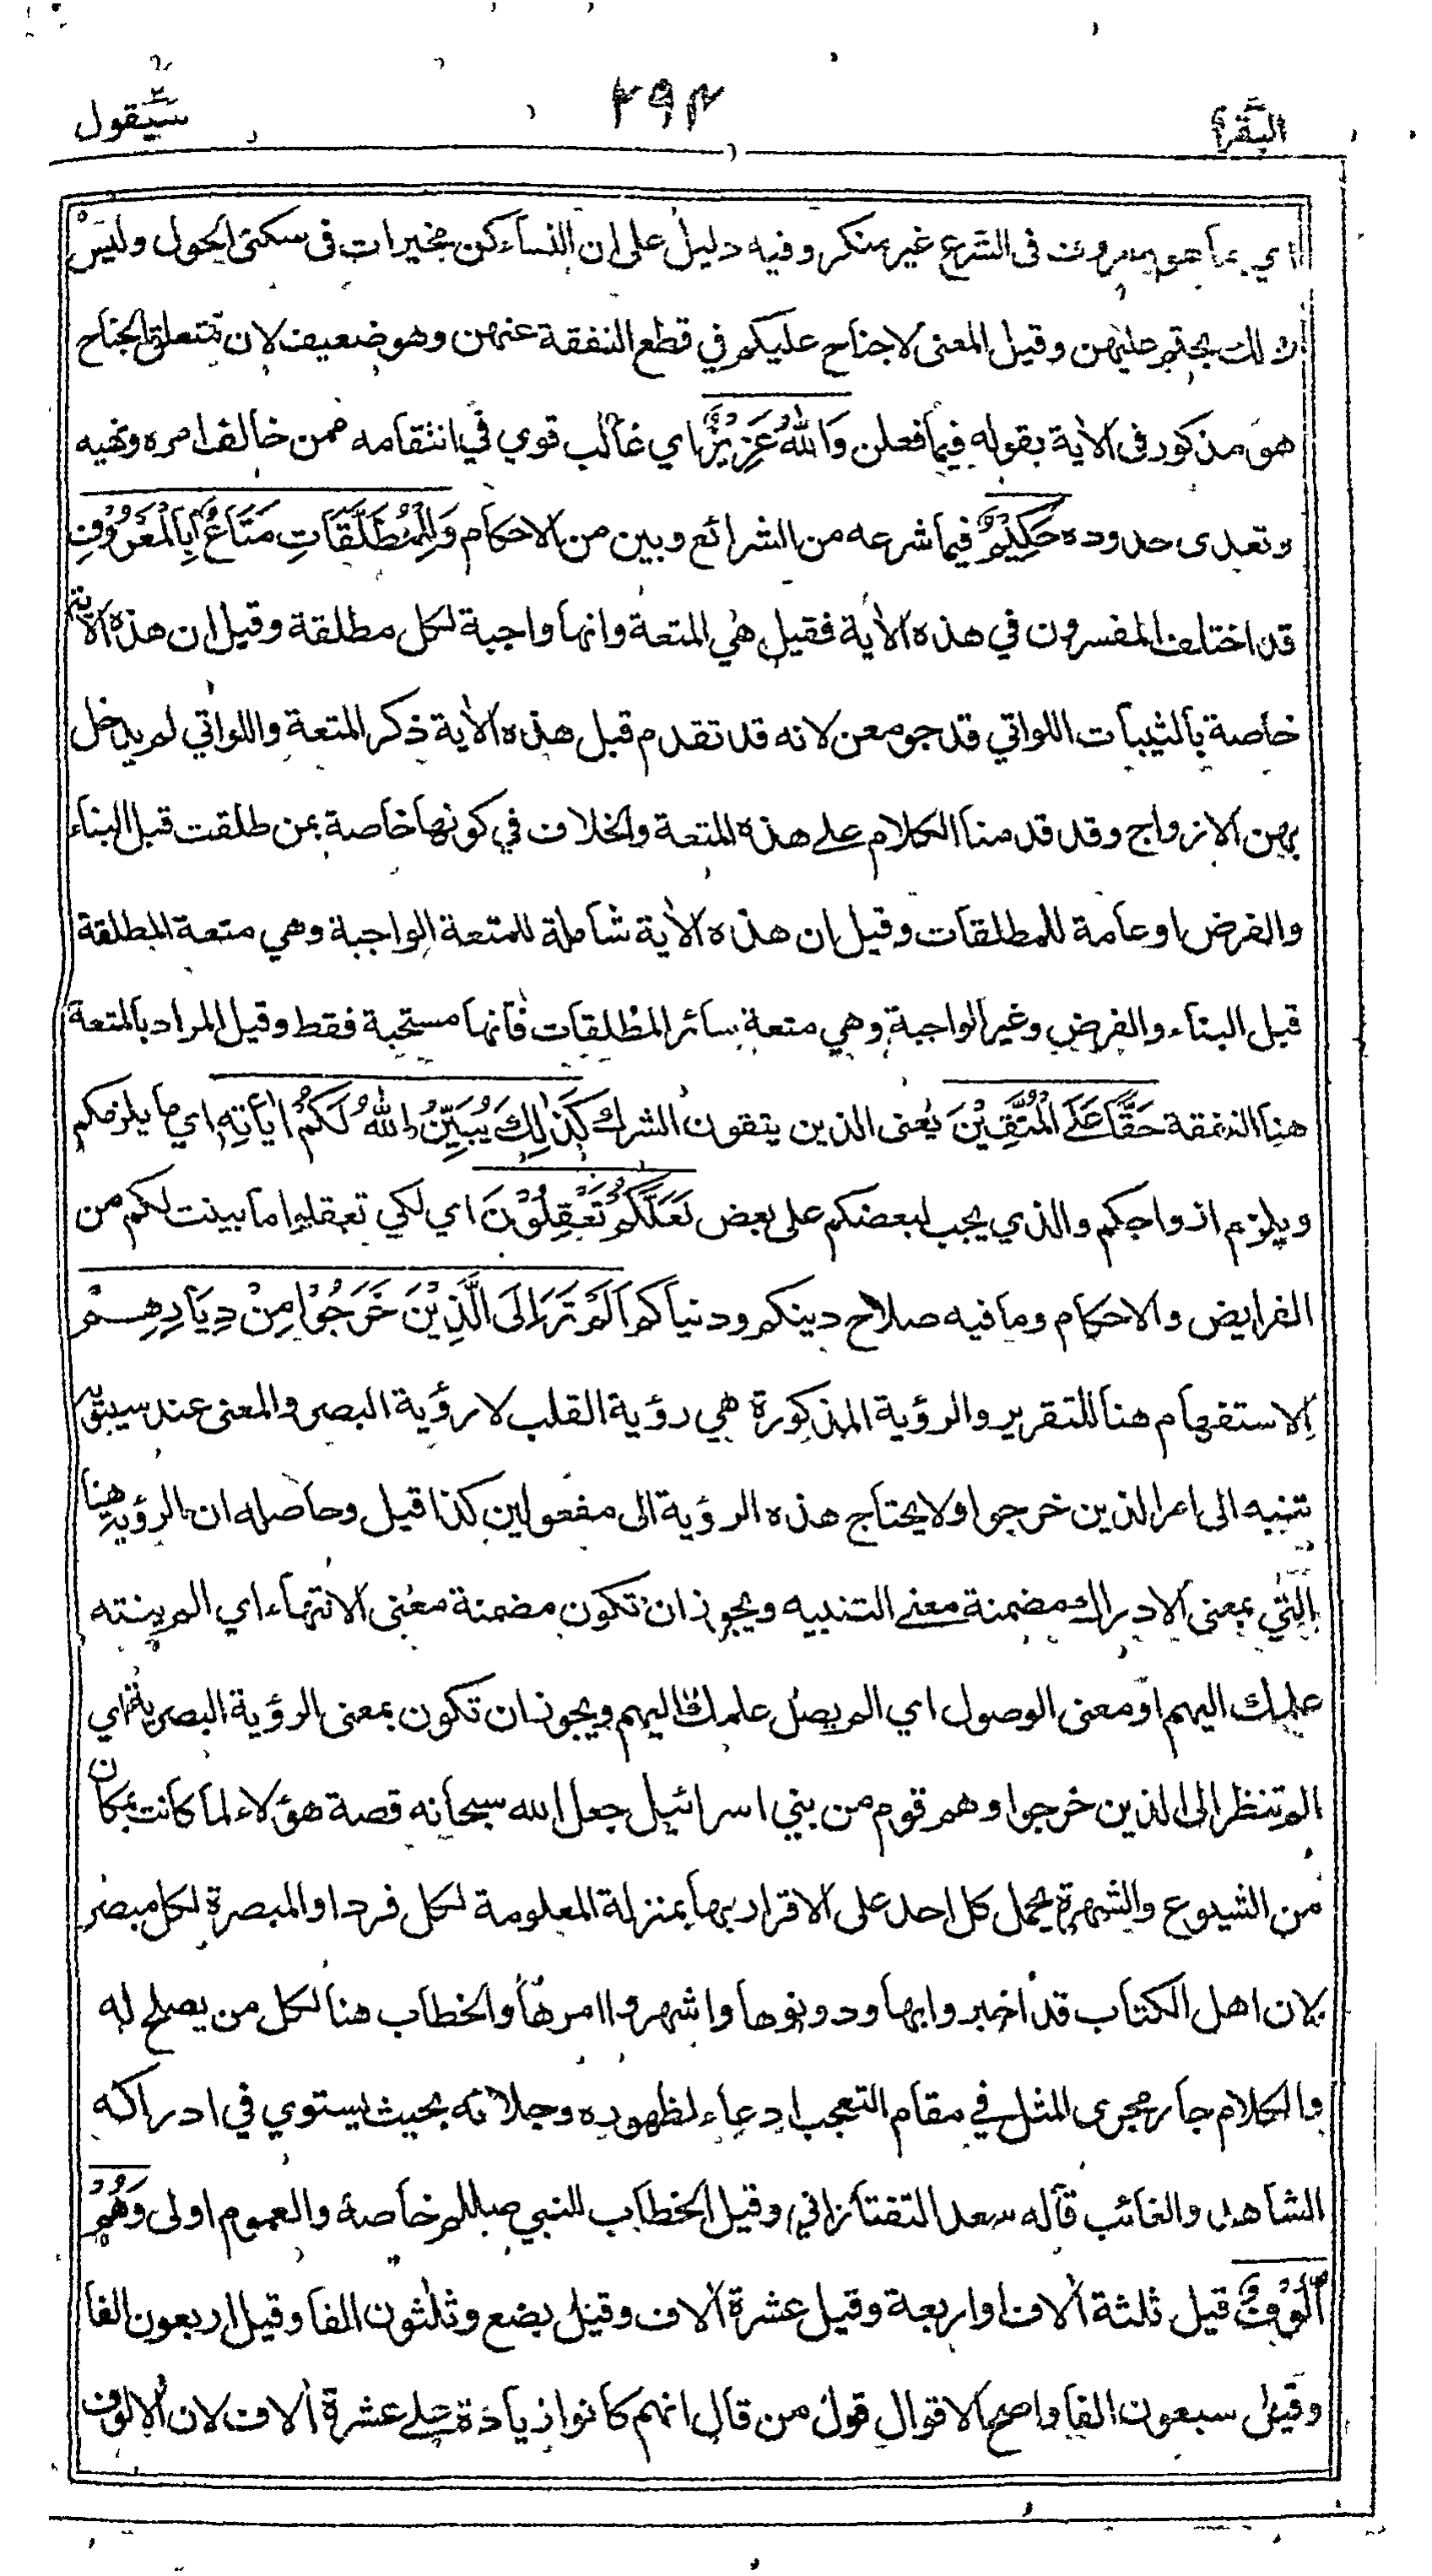 البقرة ٢٩٣ سيقول
اي بما هو معروف في الشرع غير منكر وفيه دليل على ان النساء كن مخيرات في سكنى الحول وليس
ذلك بحتم عليهن وقيل المعنى لا جناح عليكم في قطع النفقة عنهن وهو ضعيف لان متعلق الجناح
هو مذكور في الأية بقوله فيما فعلن وَاللهُ عَزِيْزٌ اي غالب قوي في انتقامه ممن خالف امره ونهيه
وتعدى حدوده حَكِيْمٌ فيما شرعه من الشرائع وبين من الاحكام وَلِلْمُطَلَّقَاتِ مَتَاعٌ بِالْمَعْرُوْفِ
قد اختلف المفسرون في هذه الأية فقيل هي المتعة وانها واجبة لكل مطلقة وقيل ان هذه الأية
خاصة بالثيبات اللواتي قد جومعن لانه قد تقدم قبل هذه الأية ذكر المتعة واللواتي لم يدخل
بهن الازواج وقد قدمنا الكلام على هذه المتعة والخلاف في كونها خاصة بمن طلقت قبل البناء
والفرض او عامة للمطلقات وقيل ان هذه الأية شاملة للمتعة الواجبة وهي متعة المطلقة
قبل البناء والفرض وغير الواجبة وهي متعة سائر المطلقات فانها مستحبة فقط وقيل المراد بالمتعة
هنا النفقة حَقًّا عَلَى الْمُتَّقِيْنَ يعنى الذين يتقون الشرك كَذٰلِكَ يُبَيِّنُ اللهُ لَكُمْ اٰيَاتِهٖ اي ما يلزمكم
ويلزم ازواجكم والذي يجب لبعضكم على بعض لَعَلَّكُمْ تَعْقِلُوْنَ اي لكي تعقلوا ما بينت لكم من
الفرايض والاحكام وما فيه صلاح دينكم ودنياكم اَلَمْ تَرَ اِلَى الَّذِيْنَ خَرَجُوْا مِنْ دِيَارِهِمْ
الاستفهام هنا للتقرير والرؤية المذكورة هي رؤية القلب لا رؤية البصر والمعنى عند سيبويه
تنبه الى امر الذين خرجوا ولا يحتاج هذه الرؤية الى مفعولين كذا قيل وحاصله ان الرؤية هنا
التي بمعنى الادراك مضمنة معنى التنبيه ويجوز ان تكون مضمنة معنى الانتهاء اي الم ينته
علمك اليهم او معنى الوصول اي الم يصل علمك اليهم ويجوز ان تكون بمعنى الرؤية البصرية اي
الم تنظر الى الذين خرجوا وهم قوم من بني اسرائيل جعل الله سبحانه قصة هؤلاء لما كانت بمكان
من الشيوع والشهرة يحمل كل احد على الاقرار بها بمنزلة المعلومة لكل فرد او المبصرة لكل مبصر
لان اهل الكتاب قد اخبروا بها ودونوها واشهروا امرها والخطاب هنا لكل من يصلح له
والكلام جار مجرى المثل في مقام التعجب ادعاء لظهوره وجلائه بحيث يستوي في ادراكه
الشاهد والغائب قاله سعد التفتازاني وقيل الخطاب للنبي صللم خاصة والعموم اولى وَهُمْ
اُلُوْفٌ قيل ثلثة ألاف او اربعة وقيل عشرة ألاف وقيل بضع وثلثون الفا وقيل اربعون الفا
وقيل سبعون الفا واصح الاقوال قول من قال انهم كانوا زيادة على عشرة ألاف لان الالوف